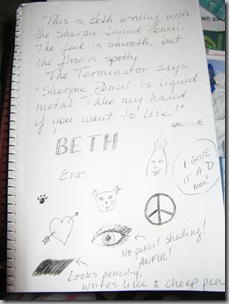 This is Beth writing with
the Sharpie Liquid Pencil.
The feel is smooth, but
the flow is spotty.
The Terminator says,
"Sharpie Pencil is liquid
metal. Take my hand
if you want to live!"
BETH
smudge
Eras
I GIVE
IT A D
No pencil shading!
AWFUL!
Looks pencily,
writes like a cheap pen